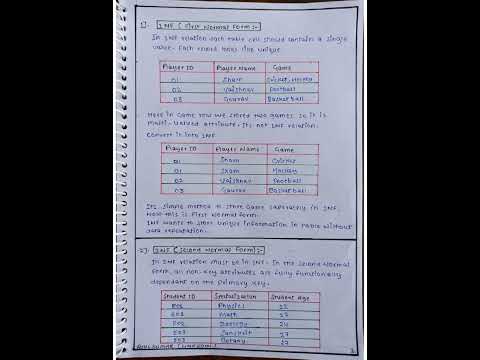 1]. 1NF (First Normal Form):-
In 1NF relation each table cell should contain a single
value. Each record needs to be unique.
Player ID Player Name Game
01 Sham Cricket, Hockey
02 Vaishnav Football
03 Gaurav Basketball
Here in Game row we stored two games so it is
multi-valued attribute. It's not 1NF relation.
Convert it into 1NF.
Player ID Player Name Game
01 Sham Cricket
01 Sham Hockey
02 Vaishnav Football
03 Gaurav Basketball
Its simple method to store Game separately in 1NF.
Now this is First Normal form.
1NF wants to store unique information in table without
data repeatation.
2]. 2NF (Second Normal Form):-
In 2NF relation must be in 1NF. In the second Normal
Form, all non-key attributes are fully functionally
dependant on the primary key.
Student ID Specialization Student Age
E01 Physics
E01 Math
E02 Biology 24
E03 Sanskrit 27
E03 Botany 27